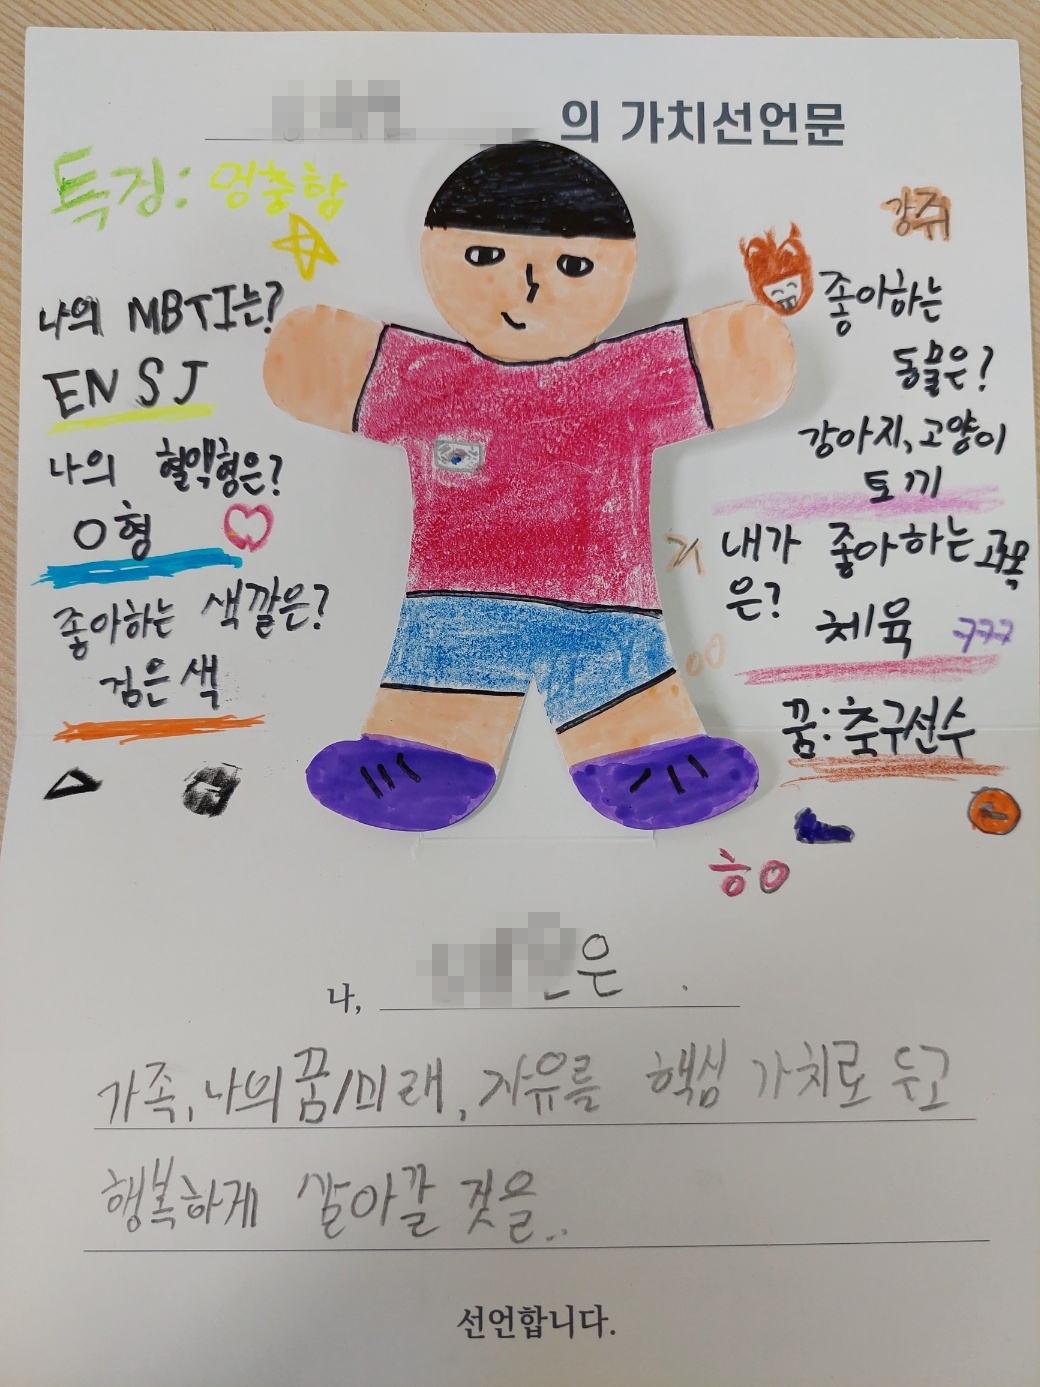 의 가치선언문
특징: 멍충함
나의 MBTI는?
ENSJ
나의 혈액형은?
O형
좋아하는 색깔은?
검은색
강쥐
좋아하는
동물은?
강아지, 고양이
토끼
내가 좋아하는 과목
은?
체육
ㅋㅋㅋ
꿈: 축구선수
ㅎㅇ
나, 은 .
가족, 나의 꿈/미래, 자유를 핵심 가치로 두고
행복하게 살아갈 것을..
선언합니다.